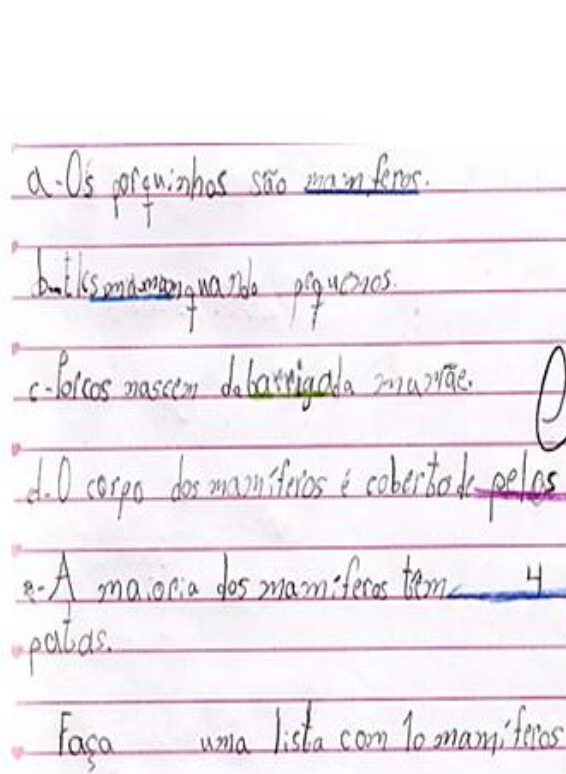 a-Os porquinhos são mamíferos.
b-Eles mamam quando pequenos.
c-Porcos nascem da barriga da mamãe.
d-O corpo dos mamíferos é coberto de pelos
e-A maioria dos mamíferos têm 4
patas.
Faça uma lista com 10 mamíferos